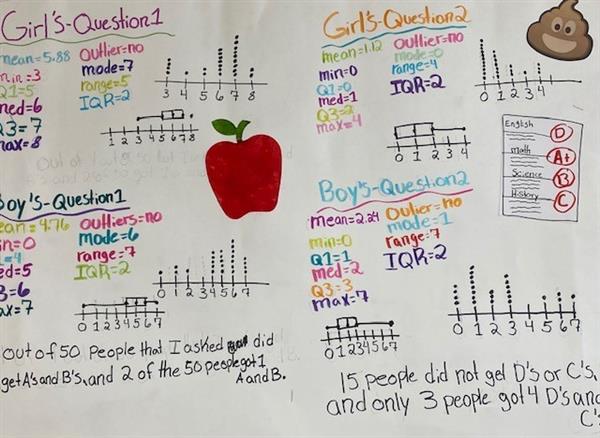 Girl's-Question1
mean=5.88
min=3
Q1=5
med=6
Q3=7
max=8
Outlier=no
mode=7
range=5
IQR=2
3 4 5 6 7 8
1 2 3 4 5 6 7 8
Boy's-Question1
mean=4.76
min=0
Q1=4
med=5
Q3=6
max=7
Outliers=no
mode=6
range=7
IQR=2
0 1 2 3 4 5 6 7
0 1 2 3 4 5 6 7
Out of 50 people that I asked did
get A's and B's, and 2 of the 50 people got 1
A and B.
Girl's-Question2
mean=1.12
min=0
Q1=0
med=1
Q3=2
max=4
Outlier=no
mode=0
range=4
IQR=2
0 1 2 3 4
0 1 2 3 4
English
D
math
A+
Science
B
History
C
Boy's-Question2
mean=2.24
min=0
Q1=1
med=2
Q3=3
max=7
Outlier=no
mode=1
range=7
IQR=2
0 1 2 3 4 5 6 7
0 1 2 3 4 5 6 7
15 people did not get D's or C's,
and only 3 people got 4 D's and
C's